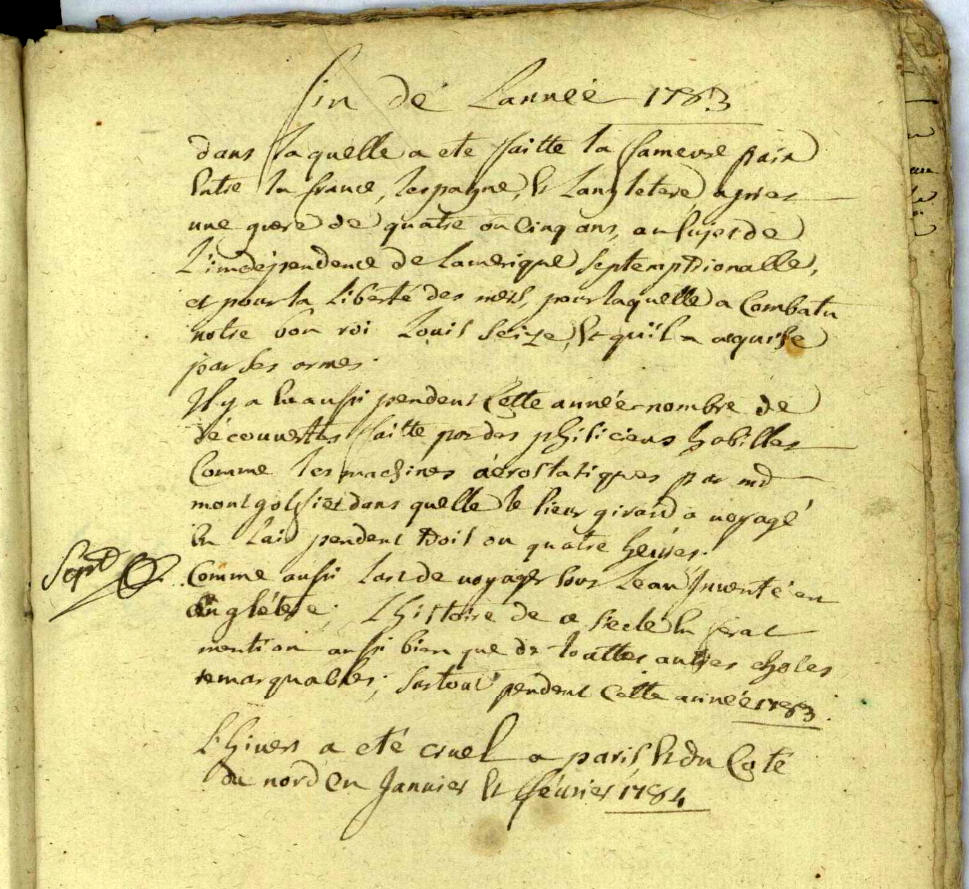 fin de Lannéé 1783
dans laquelle a eté faitte la fameuse paix
Entre la france, lespagne, Et Langletere apres
une guere de quatre ou Cinq ans, au Sujet de
L'independence de Lamerique Septemptrionalle,
et pour la Liberté des mers, pour laquelle a Combatu
notre bon roi Louis Seize, Et quil a aquise
par Ses armes.
Il y a Eu aussi pendent Cette année nombre de
découvertes faitte par des phisiciens habilles
Comme les machines aérostatiques par md
montgolfier dans quelle le sieur girard a voyagé
En Lair pendent trois ou quatre heures.
Comme aussi Lart de voyager Sous Leau Inventé en
Anglétere; L'histoire de ce Siecle En ferat
mention aussi bien que de touttes autres choses
remarquables; Surtout pendent Cette année 1783.
Sept
L'hivers a eté cruel a paris Et du Coté
du nord En Janvier Et février 1784